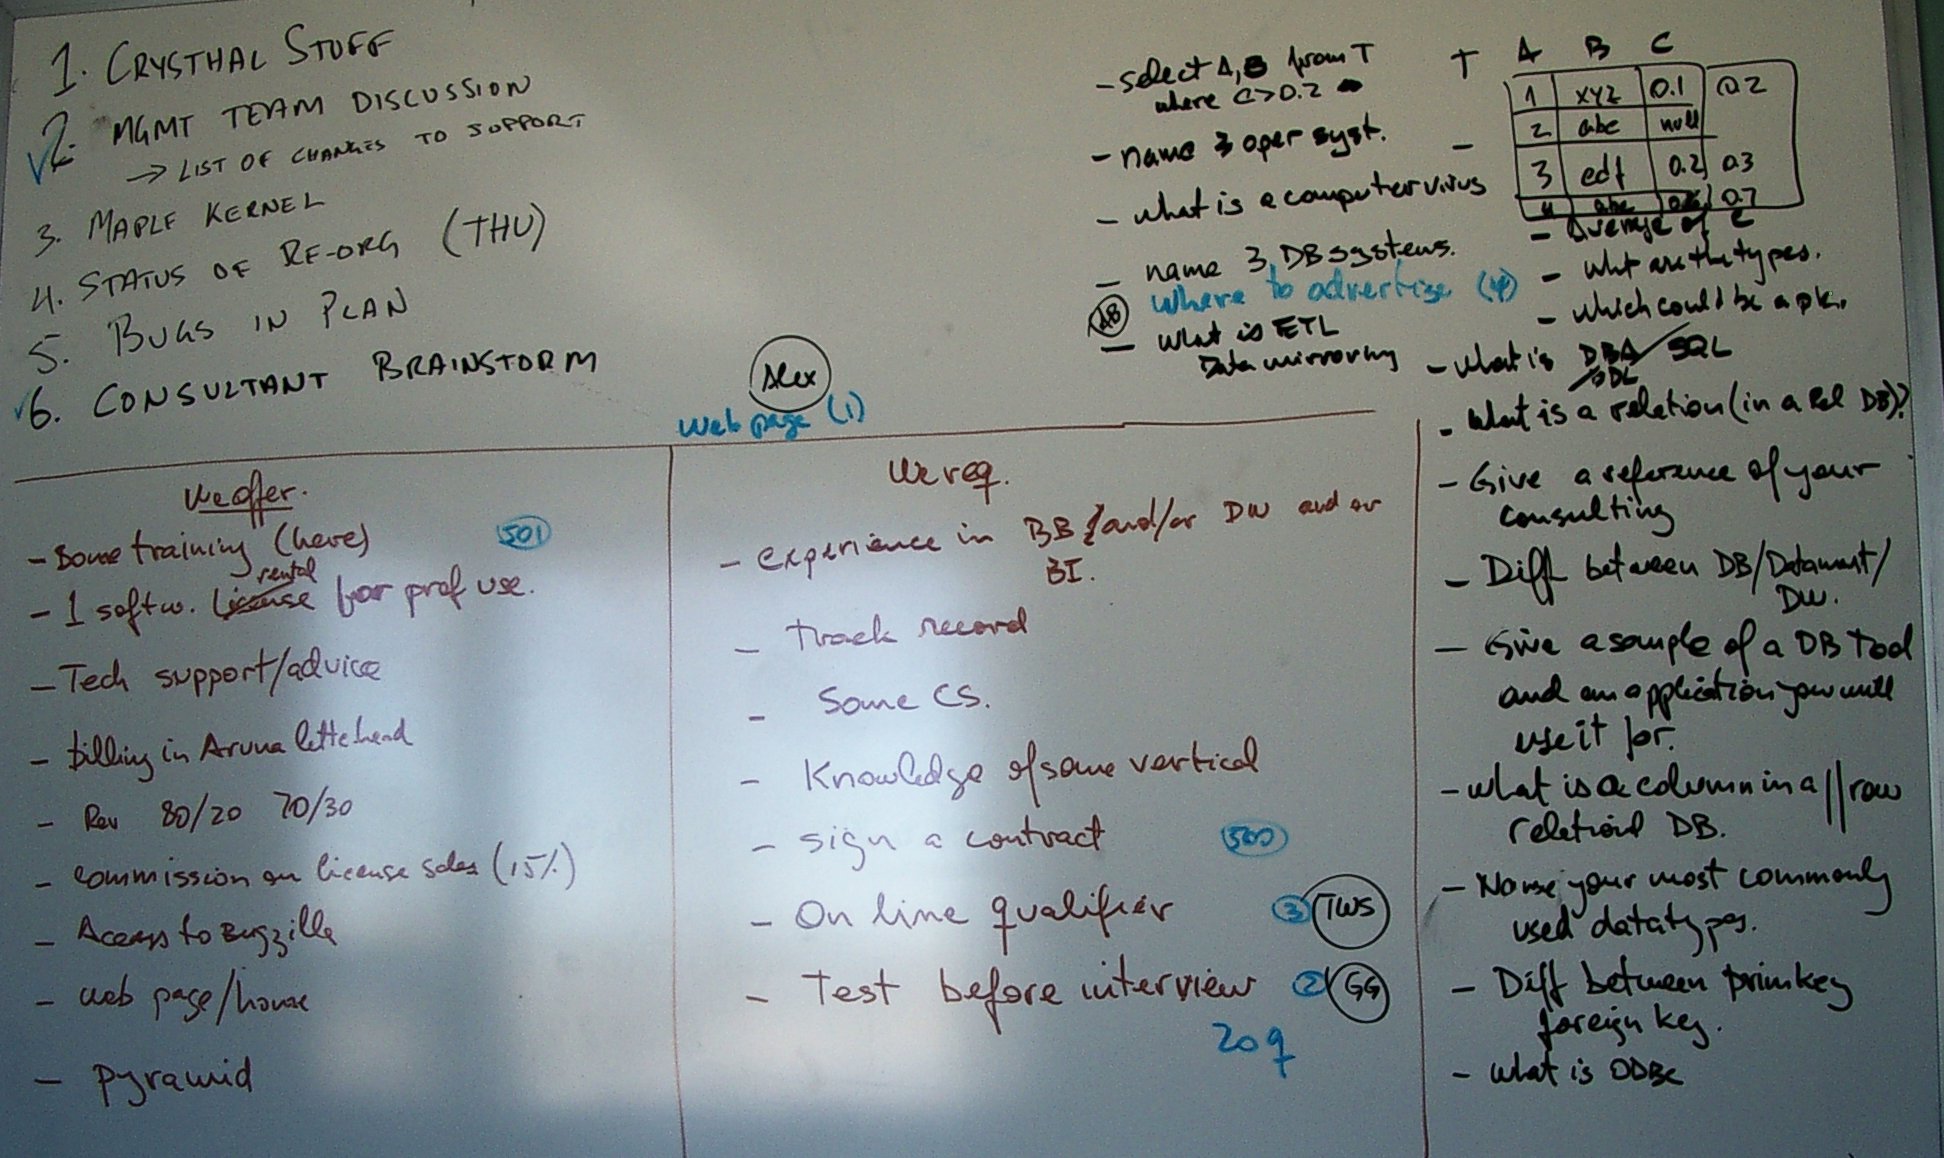 1. CRYSTHAL STUFF
2. MGMT TEAM DISCUSSION
→ LIST OF CHANGES TO SUPPORT
3. MAPLE KERNEL
4. STATUS OF RE-ORG (THU)
5. BUGS IN PLAN
6. CONSULTANT BRAINSTORM
Alex
Web page (1)
- select A, B from T
where C>0.2
- name 3 oper syst.
- what is a computer virus
- name 3 DB systems.
Where to advertize (4)
AB
- what is ETL
Data mirroring
T A B C
1 xyz 0.1 0.2
2 abc null
3 edf 0.2 0.3
4 abc 0.7
- Average of C
- what are the types.
- which could be a pk.
- what is DBA/SQL
/DDL
- what is a relation (in a Rel DB)?
- Give a reference of your
consulting
- Diff between DB/Datamart/
DW.
- Give a sample of a DB Tool
and an application you will
use it for.
- what is a column in a || row
relational DB.
- Name your most commonly
used datatypes.
- Diff between prim key
foreign key.
- what is ODBC
We offer.
- Some training (here) 501
rental
- 1 softw. license for prof use.
- Tech support/advice
- billing in Aruna lettehead
- Rev 80/20 70/30
- commission on license sales (15%)
- Access to Bugzilla
- web page/home
- pyramid
We req.
- experience in BB and/or DW and or
BI.
- track record
- Some CS.
- Knowledge of some vertical
- sign a contract 500
- On line qualifier 3 TWS
- Test before interview 2 GG
20 q